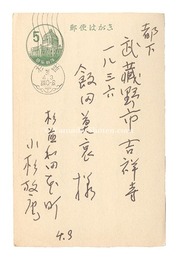 郵便はがき
5
都下
武蔵野市吉祥寺
一八三六
飯田莫哀様
杉並和田本町
小杉放庵
4.3